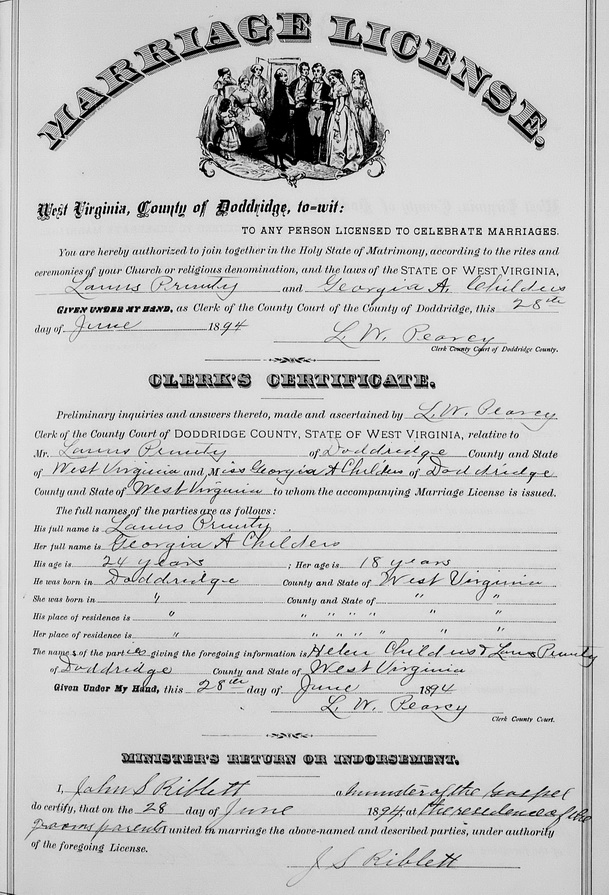 MARRIAGE LICENSE.
West Virginia, County of Doddridge, to-wit:
TO ANY PERSON LICENSED TO CELEBRATE MARRIAGES.
You are hereby authorized to join together in the Holy State of Matrimony, according to the rites and
ceremonies of your Church or religious denomination, and the laws of the STATE OF WEST VIRGINIA,
Prunty and Georgia A. Childers
GIVEN UNDER MY HAND, as Clerk of the County Court of the County of Doddridge, this 28th
day of June 1894
L. W. Pearcy
Clerk County Court of Doddridge County.
CLERK'S CERTIFICATE.
Preliminary inquiries and answers thereto, made and ascertained by L. W. Pearcy
Clerk of the County Court of DODDRIDGE COUNTY, STATE OF WEST VIRGINIA, relative to
Mr. Prunty of Doddridge County and State
of West Virginia and Miss Georgia A Childers of Doddridge
County and State of West Virginia to whom the accompanying Marriage License is issued.
The full names of the parties are as follows:
His full name is Prunty
Her full name is Georgia A Childers
His age is 24 years ; Her age is 18 years
He was born in Doddridge County and State of West Virginia
She was born in " County and State of " "
His place of residence is " " " " " " "
Her place of residence is " " " " " " "
The names of the parties giving the foregoing information is Helen Childers & Prunty
of Doddridge County and State of West Virginia
Given Under My Hand, this 28th day of June 1894
L. W. Pearcy
Clerk County Court.
MINISTER'S RETURN OR INDORSEMENT.
I, John S Riblett a minister of the Gospel
do certify, that on the 28 day of June 1894, at the residence of the
grooms parents united in marriage the above-named and described parties, under authority
of the foregoing License.
J S Riblett